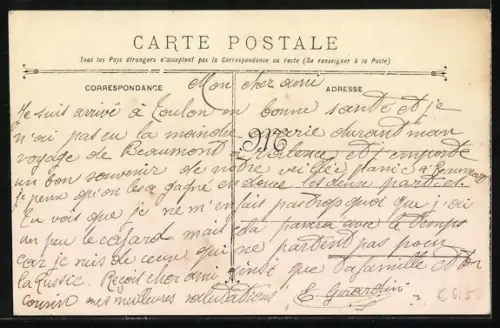 CARTE POSTALE
Tous les Pays étrangers n'acceptent pas la Correspondance au recto (Se renseigner à la Poste)
CORRESPONDANCE
ADRESSE
Mon cher ami
Je suis arrivé à Toulon en bonne santé et je
n'ai pas eu la moindre avarie durant mon
voyage de Beaumont Valence, et j'emporte
un bon souvenir de notre veillée à Beaumont
je peux qu'on les a gagné en douce les deux parties.
Tu vois que je ne m'en fais pas trop quoi que j'ai
un peu le cafard mais cela passera avec le temps
car je suis de ceux qui ne partent pas pour
la Russie. Reçoit cher ami ainsi que ta famille et ton
cousin mes meilleures salutations E. Girardin
M
€ 6.50